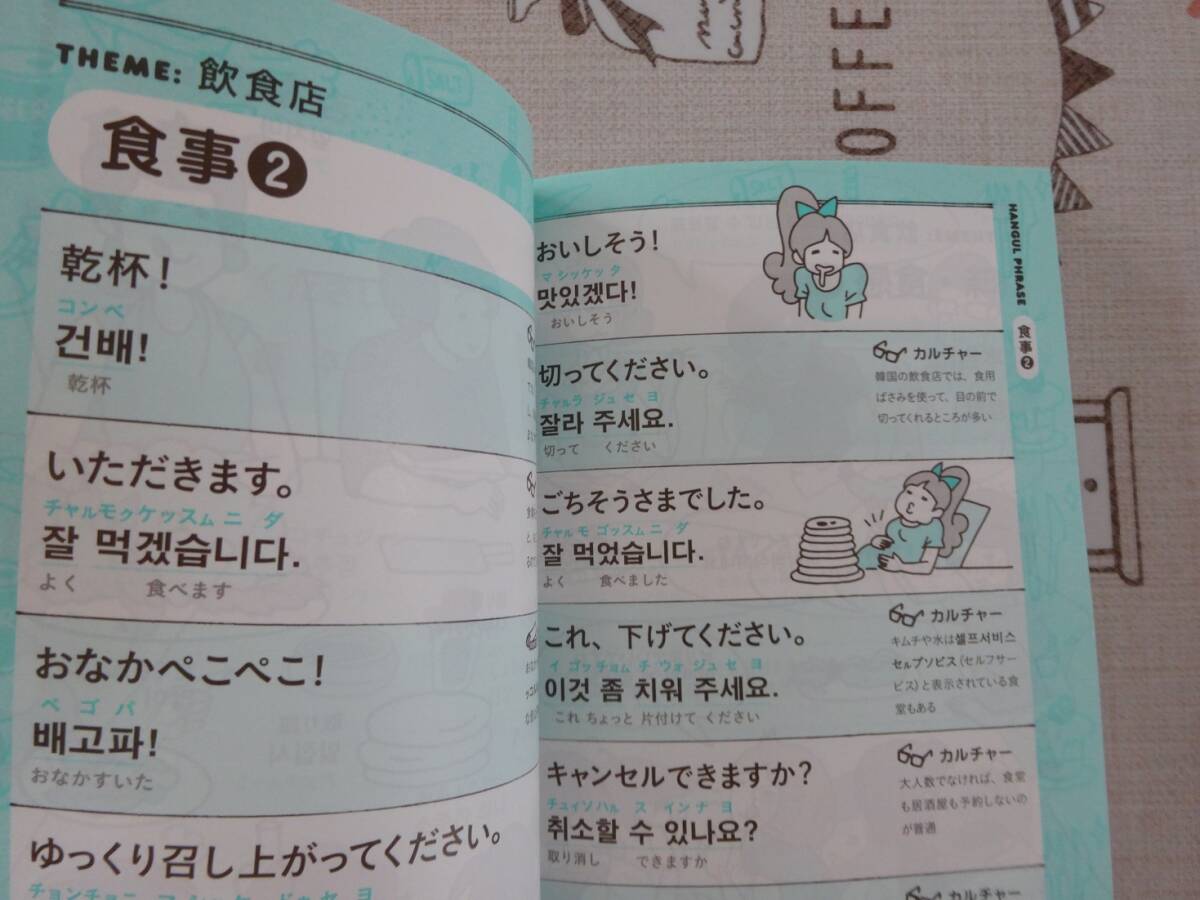 THEME: 飲食店
食事❷
乾杯!
コンベ
건배!
乾杯
いただきます。
チャルモクケッスムニダ
잘 먹겠습니다.
よく 食べます
おなかぺこぺこ!
ペゴパ
배고파!
おなかすいた
ゆっくり召し上がってください。
おいしそう!
マシッケッタ
맛있겠다!
おいしそう
切ってください。
チャルラ ジュセヨ
잘라 주세요.
切って ください
カルチャー
韓国の飲食店では、食用
ばさみを使って、目の前で
切ってくれるところが多い
ごちそうさまでした。
チャル モゴッスムニダ
잘 먹었습니다.
よく 食べました
これ、下げてください。
イゴッチョム チウォ ジュセヨ
이것 좀 치워 주세요.
これ ちょっと 片付けて ください
カルチャー
キムチや水は셀프서비스
セルプソビス(セルフサー
ビス)と表示されている食
堂もある
キャンセルできますか?
チュィソハル ス インナヨ
취소할 수 있나요?
取り消し できますか
カルチャー
大人数でなければ、食堂
も居酒屋も予約しないの
が普通
カルチャー
HANGUL PHRASE
食事❷
OFFEE